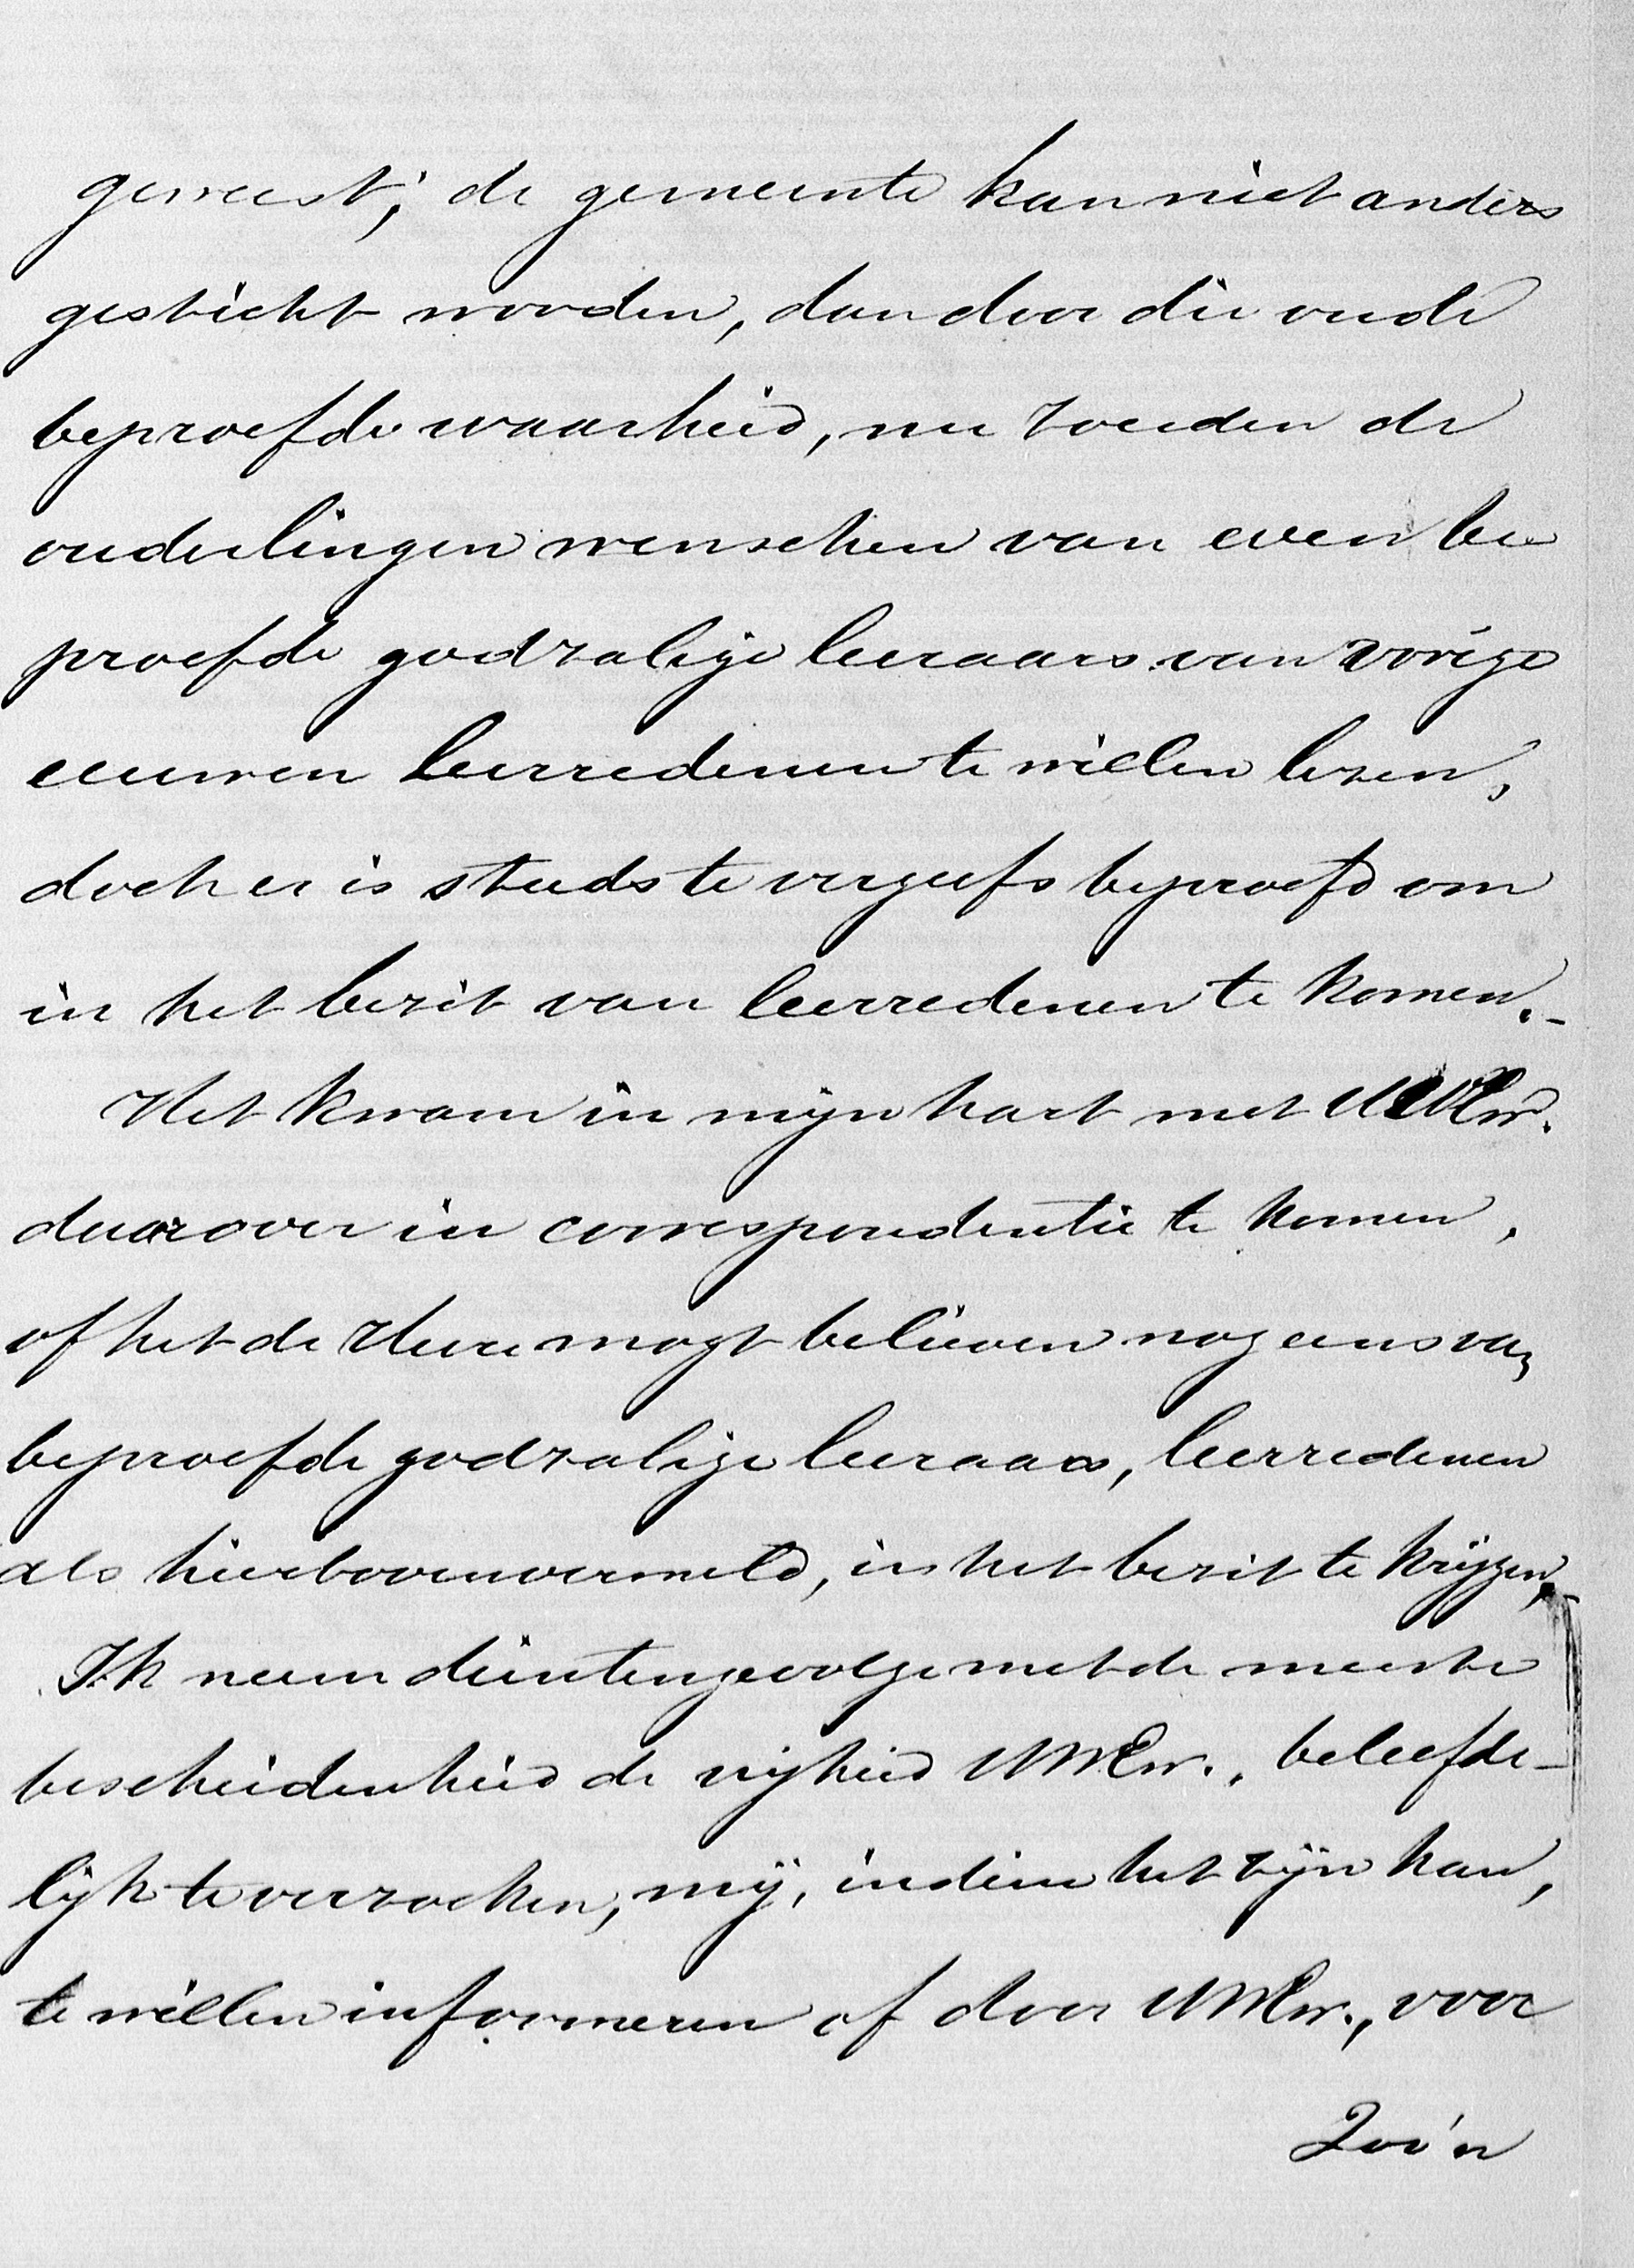 geweest; de gemeente kan niet anders
gesticht worden, dan door die oude
beproefde waarheid, nu zouden de
ouderlingen wenschen van even be
proefde godzalige leeraars van vorige
eeuwen leerredenen te willen lezen,
doch er is steeds te vergeefs beproefd om
in het bezit van leerredenen te komen._
Het kwam in mijn hart met UWEw.
daarover in correspondentie te komen,
of het de Heere mogt believen nog eens van
beproefde godzalige leeraars, leerredenen
als hierbovenvermeld, in het bezit te krijgen,_
Ik neem dientengevolge met de meeste
bescheidenheid de vrijheid UWEw., beleefde-
lijk te verzoeken, mij, indien het zijn kan,
te willen informeren of door UWEw., voor
Zoo'n